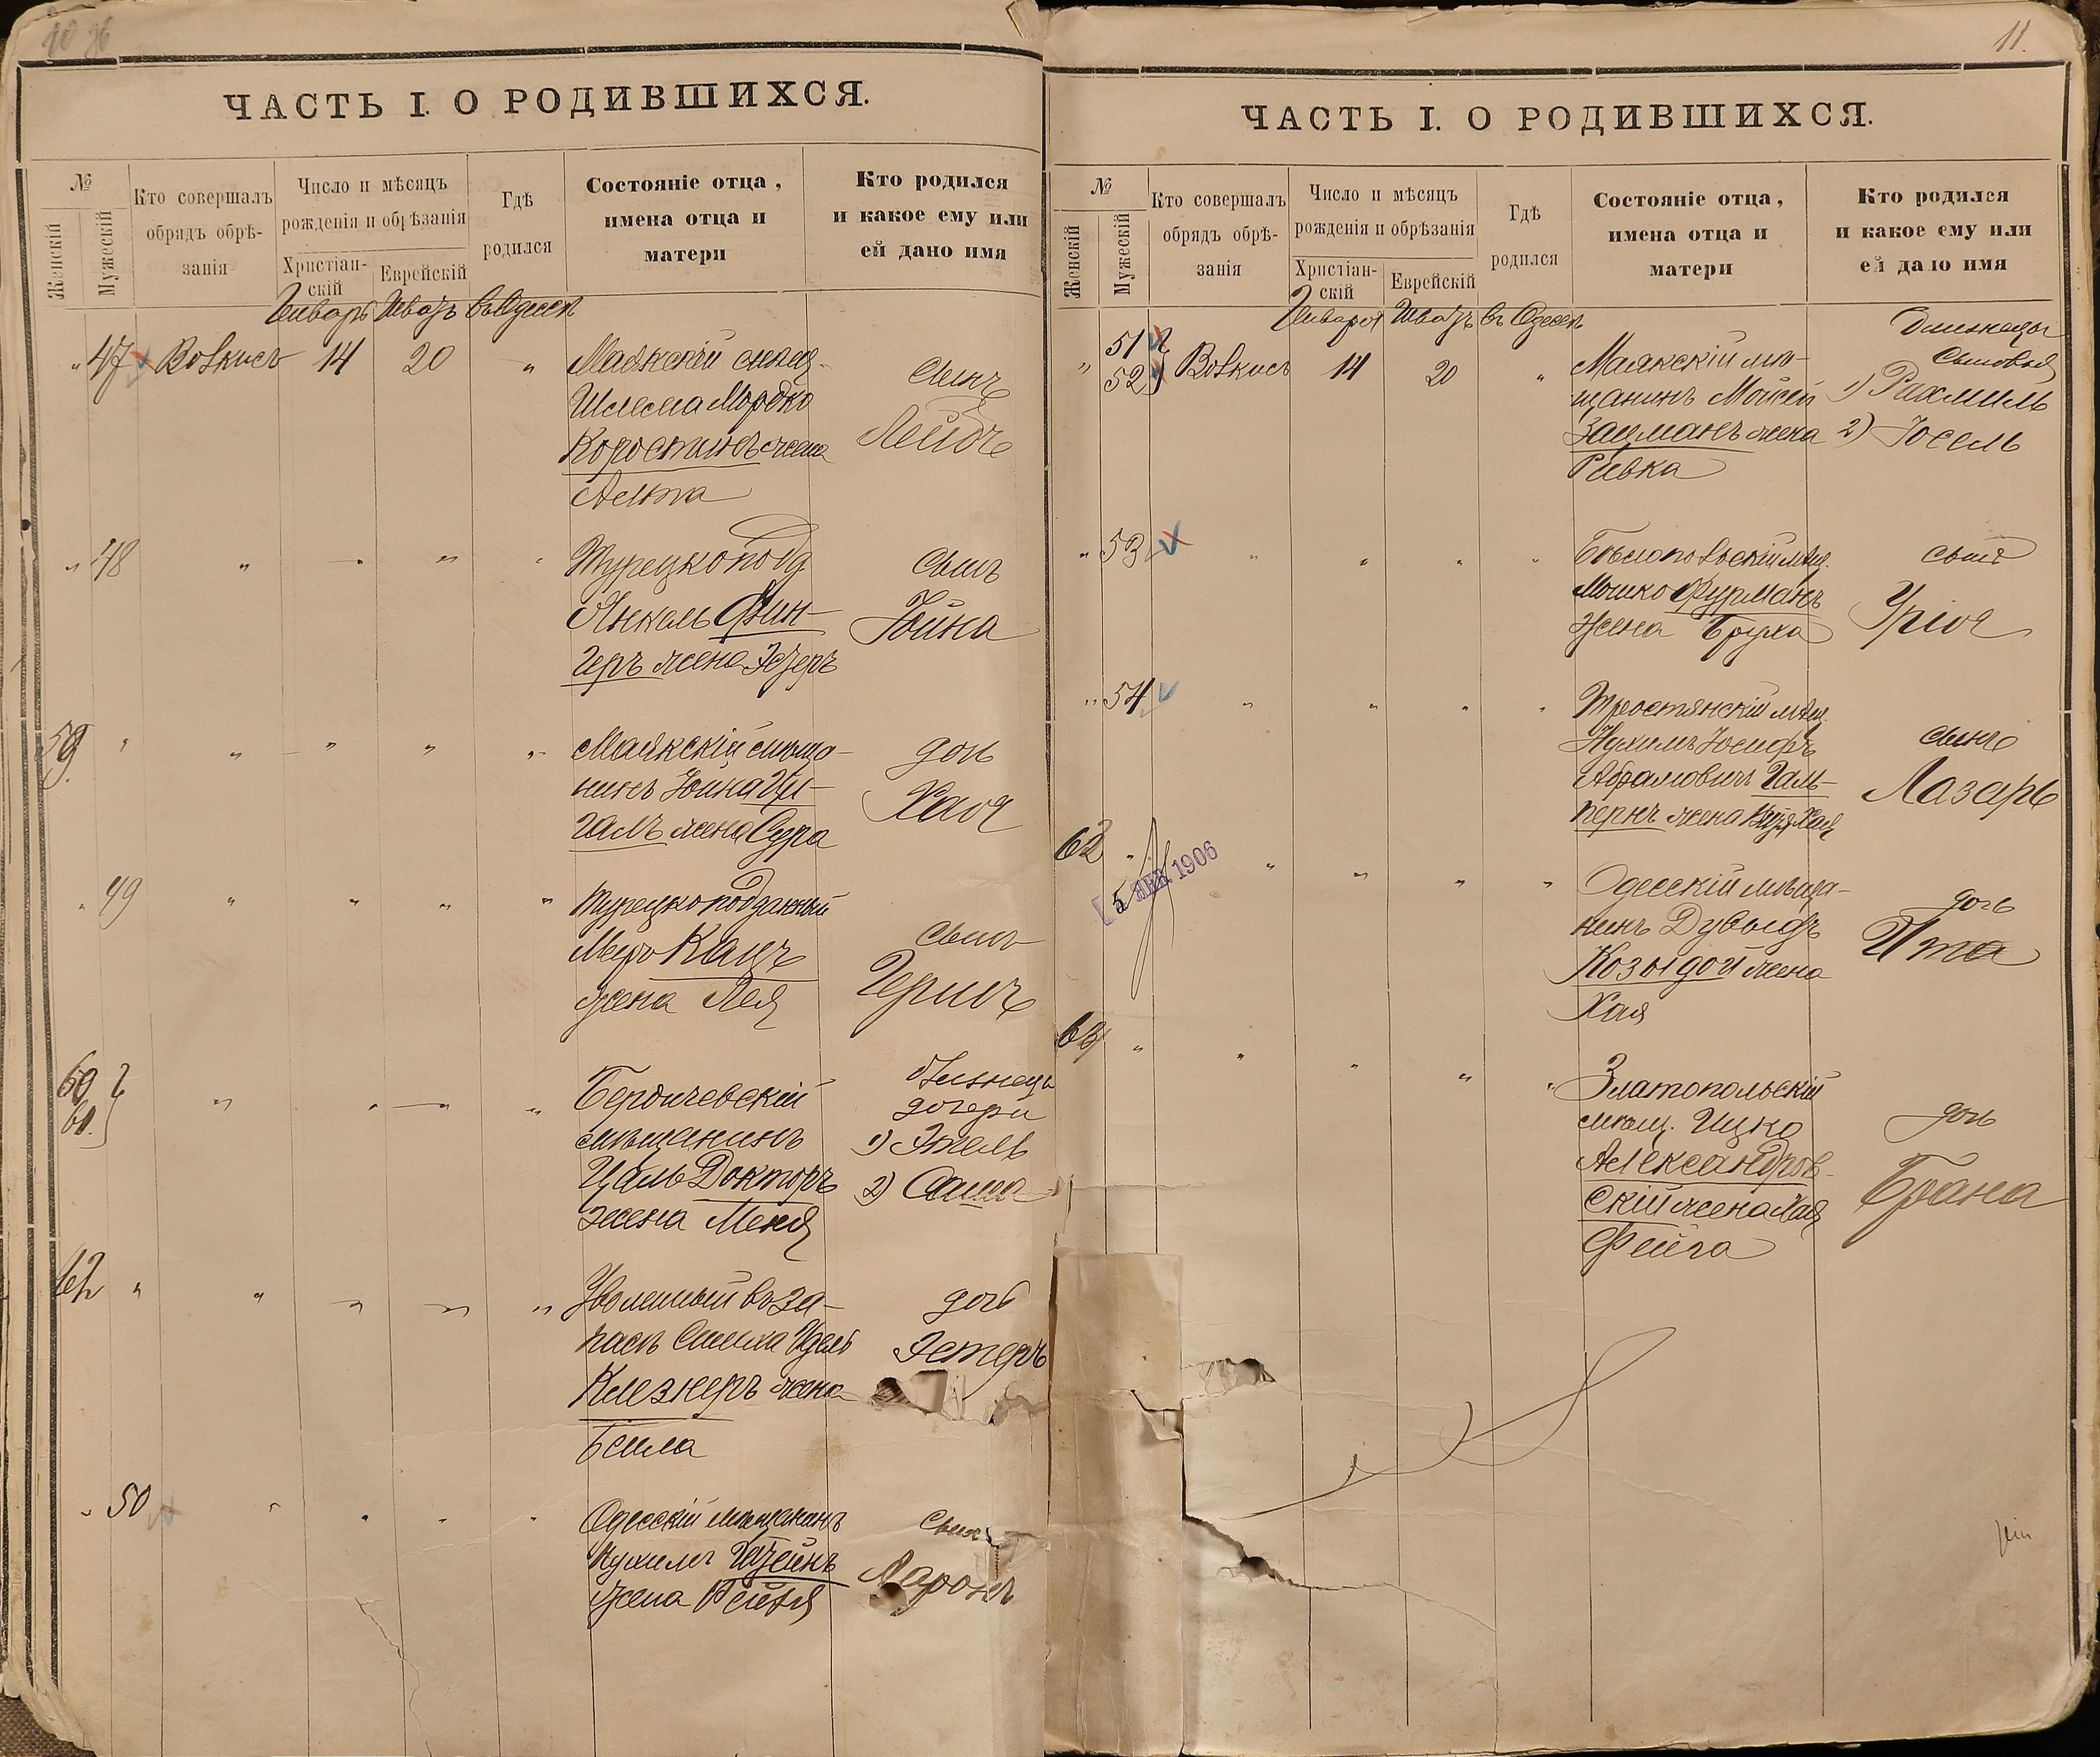 ЧАСТЬ I. О РОДИВШИХСЯ.
№
Женскій
Мужескій
Кто совершалъ
обрядъ обрѣ-
занія
Число и мѣсяцъ
рожденія и обрѣзанія
Христіан-
скій
Еврейскій
Гдѣ
родился
Состояніе отца,
имена отца и
матери
Кто родился
и какое ему или
ей дано имя
Январь Шватъ въ Одессѣ
" 47 14 20 "
Маякскій
Шлема Мордко
Коростинъ жена
сынъ
Лейбъ
" 48
Турецкопод
Янкель Фин-
геръ жена Эстеръ
сынъ
Іойна
59
Маякскій мѣща-
нинъ Іойна
жена Сура
дочь
Хая
" 49
Турецкоподданный
Меръ Кацъ
жена Лея
сынъ
Гершъ
60
61.
Бердичевскій
мѣщанинъ
Докторъ
жена Меня
близнецы
дочери
1) Этель
2)
Уволенный въ за-
пасъ
Клезнеръ жена
Бейла
дочь
Эстеръ
" 50
Одесскій мѣщанинъ
Нухимъ
жена Рейзя
сынъ
Ааронъ
11.
ЧАСТЬ I. О РОДИВШИХСЯ.
№
Женскій
Мужескій
Кто совершалъ
обрядъ обрѣ-
занія
Число и мѣсяцъ
рожденія и обрѣзанія
Христіан-
скій
Еврейскій
Гдѣ
родился
Состояніе отца,
имена отца и
матери
Кто родился
и какое ему или
ей дано имя
Января Шватъ въ Одессѣ
51
" 52 14 20 "
Маякскій мѣ-
щанинъ Мойсей
Займанъ жена
Ривка
близнецы
сыновья
1) Рахмиль
2) Іосель
" 53
Мошко Фурманъ
жена Бруха
сынъ
Урія
" 54
Тростянскій мѣщ.
Нухимъ Іосифъ
Абрамовичъ Галь-
пернъ жена Хая
сынъ
Лазарь
62 "
5 1906
Одесскій мѣща-
нинъ Дувидъ
Козыдой жена
Хая
дочь
Ита
63 "
Златопольскій
мѣщ. Ицко
Александров-
скій жена Хая
Фейга
дочь
Брана